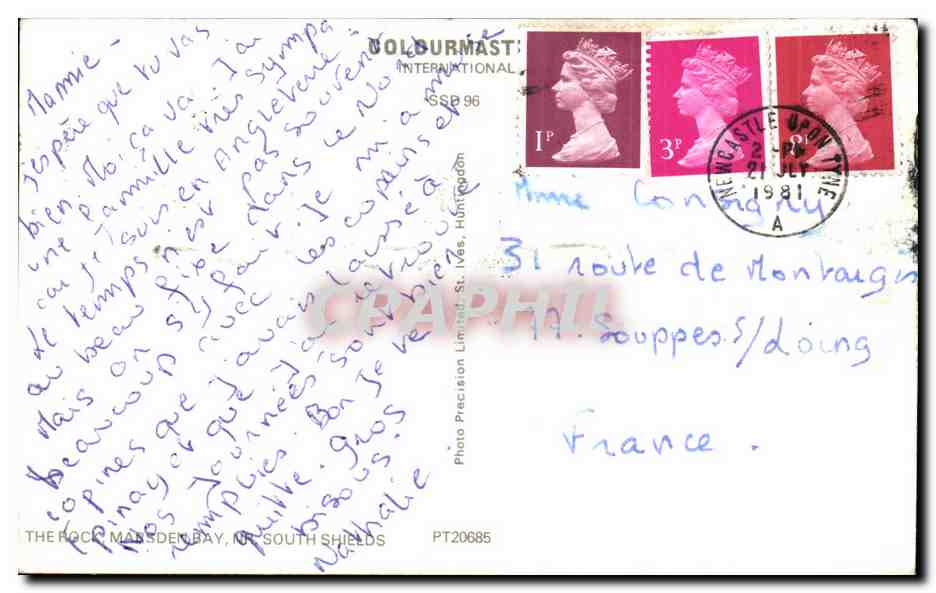 COLOURMAST
INTERNATIONAL
SSD 96
Mamie -
J'espère que tu vas
bien. Moi ça va. J'ai
une famille très sympa
car je suis en Angleterre.
Le temps n'est pas souvent
au beau fixe dans le No
Mais on s'y fait. Je m'amuse
beaucoup avec les copains et
copines que j'avais laissé à
Epinay et que j'ai retrouvé
Nos journées sont bien
remplies. Bon Je te
quitte. Gros
bisous.
Nathalie.
THE ROCK, MARSDEN BAY, NR. SOUTH SHIELDS
PT20685
Photo Precision Limited, St. Ives, Huntingdon
1P
3P
NEWCASTLE UPON TYNE
2 - PM
21 JLY
1981
A
Mme Contigny
31 route de Montargis
77. Souppes s/Loing
France.
CPAPHIL